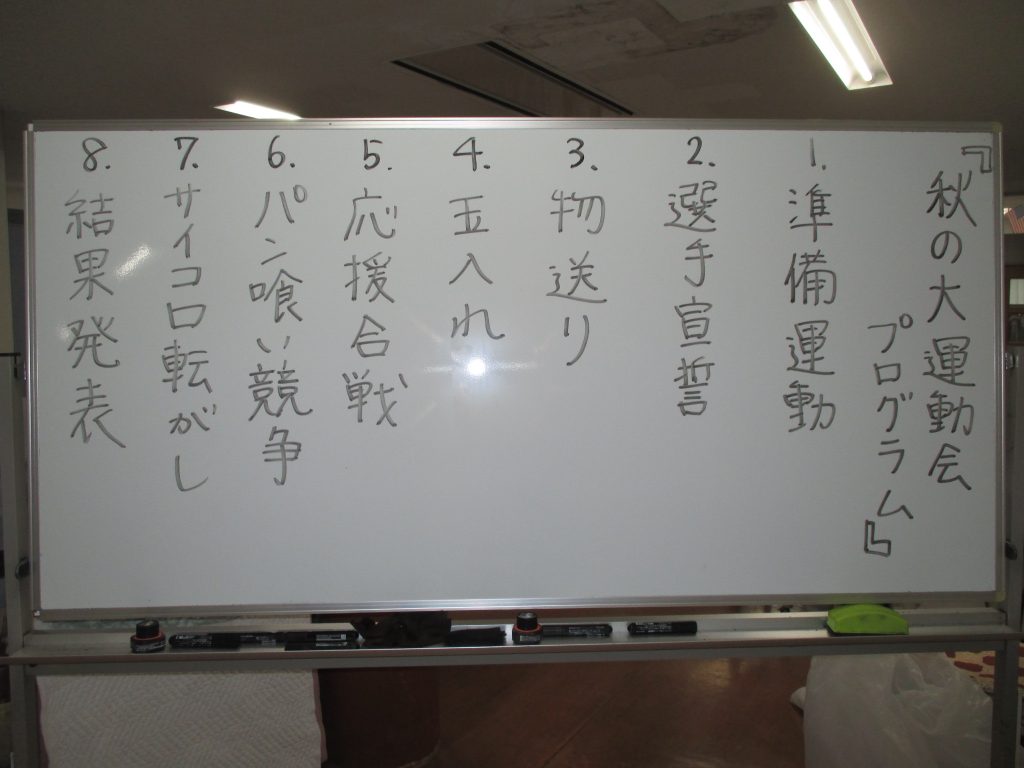 『秋の大運動会
プログラム』
1. 準備運動
2. 選手宣誓
3. 物送り
4. 玉入れ
5. 応援合戦
6. パン喰い競争
7. サイコロ転がし
8. 結果発表